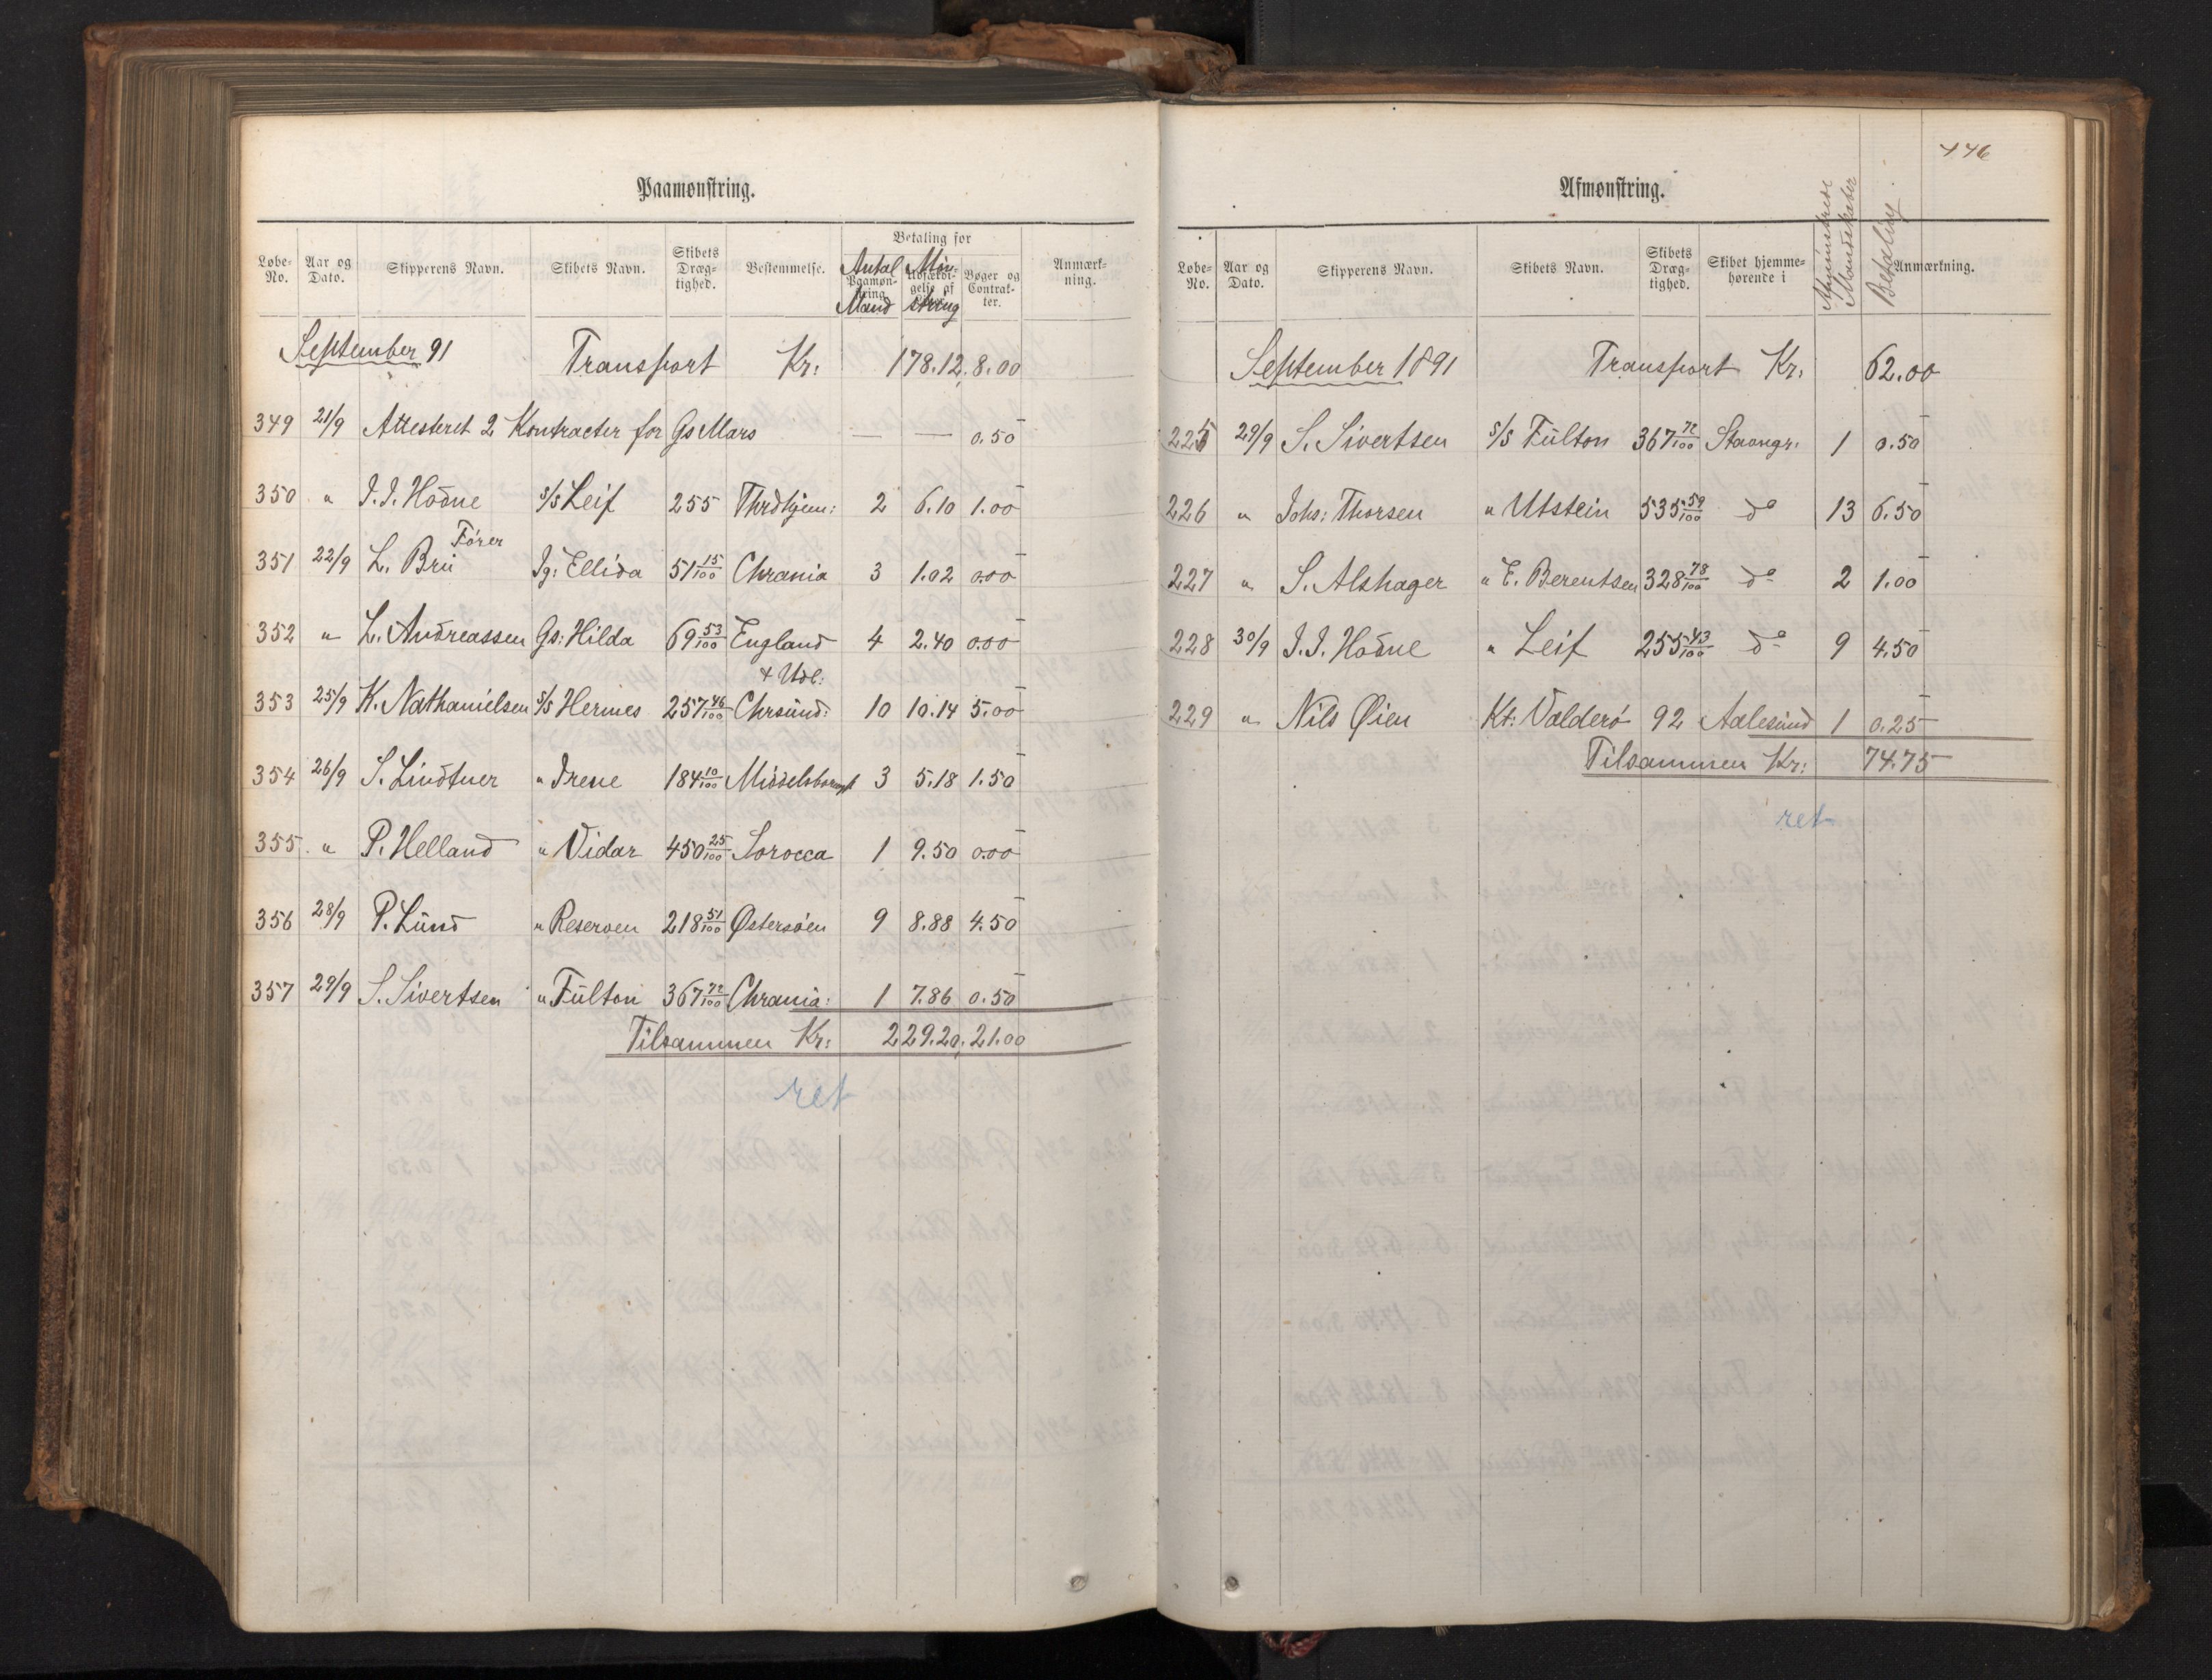 Paamønstring.
Løbe-No. Aar og Dato. Skipperens Navn. Skibets Navn. Skibets Dræg-tighed. Bestemmelse. Betaling for Antal Paamøn-string Mand Møn-string Bøger og Contrak-ter. Anmærk-ning.
September 91 Transport Kr: 178.12. 8.00
349 21/9 Attesteret 2 Kontracter for Gs Mars — — 0.50
350 " I. I. Hodne s/s Leif 255 Thrdhjem: 2 6.10 1.00
Fører
351 22/9 L. Brü Jg: Ellida 51 15/100 Chrania 3 1.02 0.00
352 " L. Andreassen Gs: Hilda 69 53/100 England 4 2.40 0.00
+ Udl:
353 25/9 K. Nathanielsen s/s Hermes 257 46/100 Chrsund: 10 10.14 5.00
354 26/9 S. Lindtner " Irene 184 10/100 3 5.18 1.50
355 " P. Helland " Vidar 450 25/100 Sorocca 1 9.50 0.00
356 28/9 P. Lund " Reserven 218 51/100 Østersøen 9 8.88 4.50
357 29/9 S. Sivertsen " Fulton 367 72/100 Chrania: 1 7.86 0.50
Tilsammen Kr: 229.20, 21.00
ret
446
Afmønstring.
Løbe-No. Aar og Dato. Skipperens Navn. Skibets Navn. Skibets Dræg-tighed. Skibet hjemme-hørende i Afmønstrede Mandskaber Betaling. Anmærkning.
September 1891 Transport Kr: 62.00
225 29/9 S. Sivertsen s/s Fulton 367 72/100 Stavngr. 1 0.50
226 " Johs: Thorsen " Utstein 535 59/100 do 13 6.50
227 " S. Alshager " E. Berentsen 328 78/100 do 2 1.00
228 30/9 I. I. Hodne " Leif 255 43/100 do 9 4.50
229 " Nils Øien Kt: Valderö 92 Aalesund 1 0.25
Tilsammen Kr: 74.75
ret